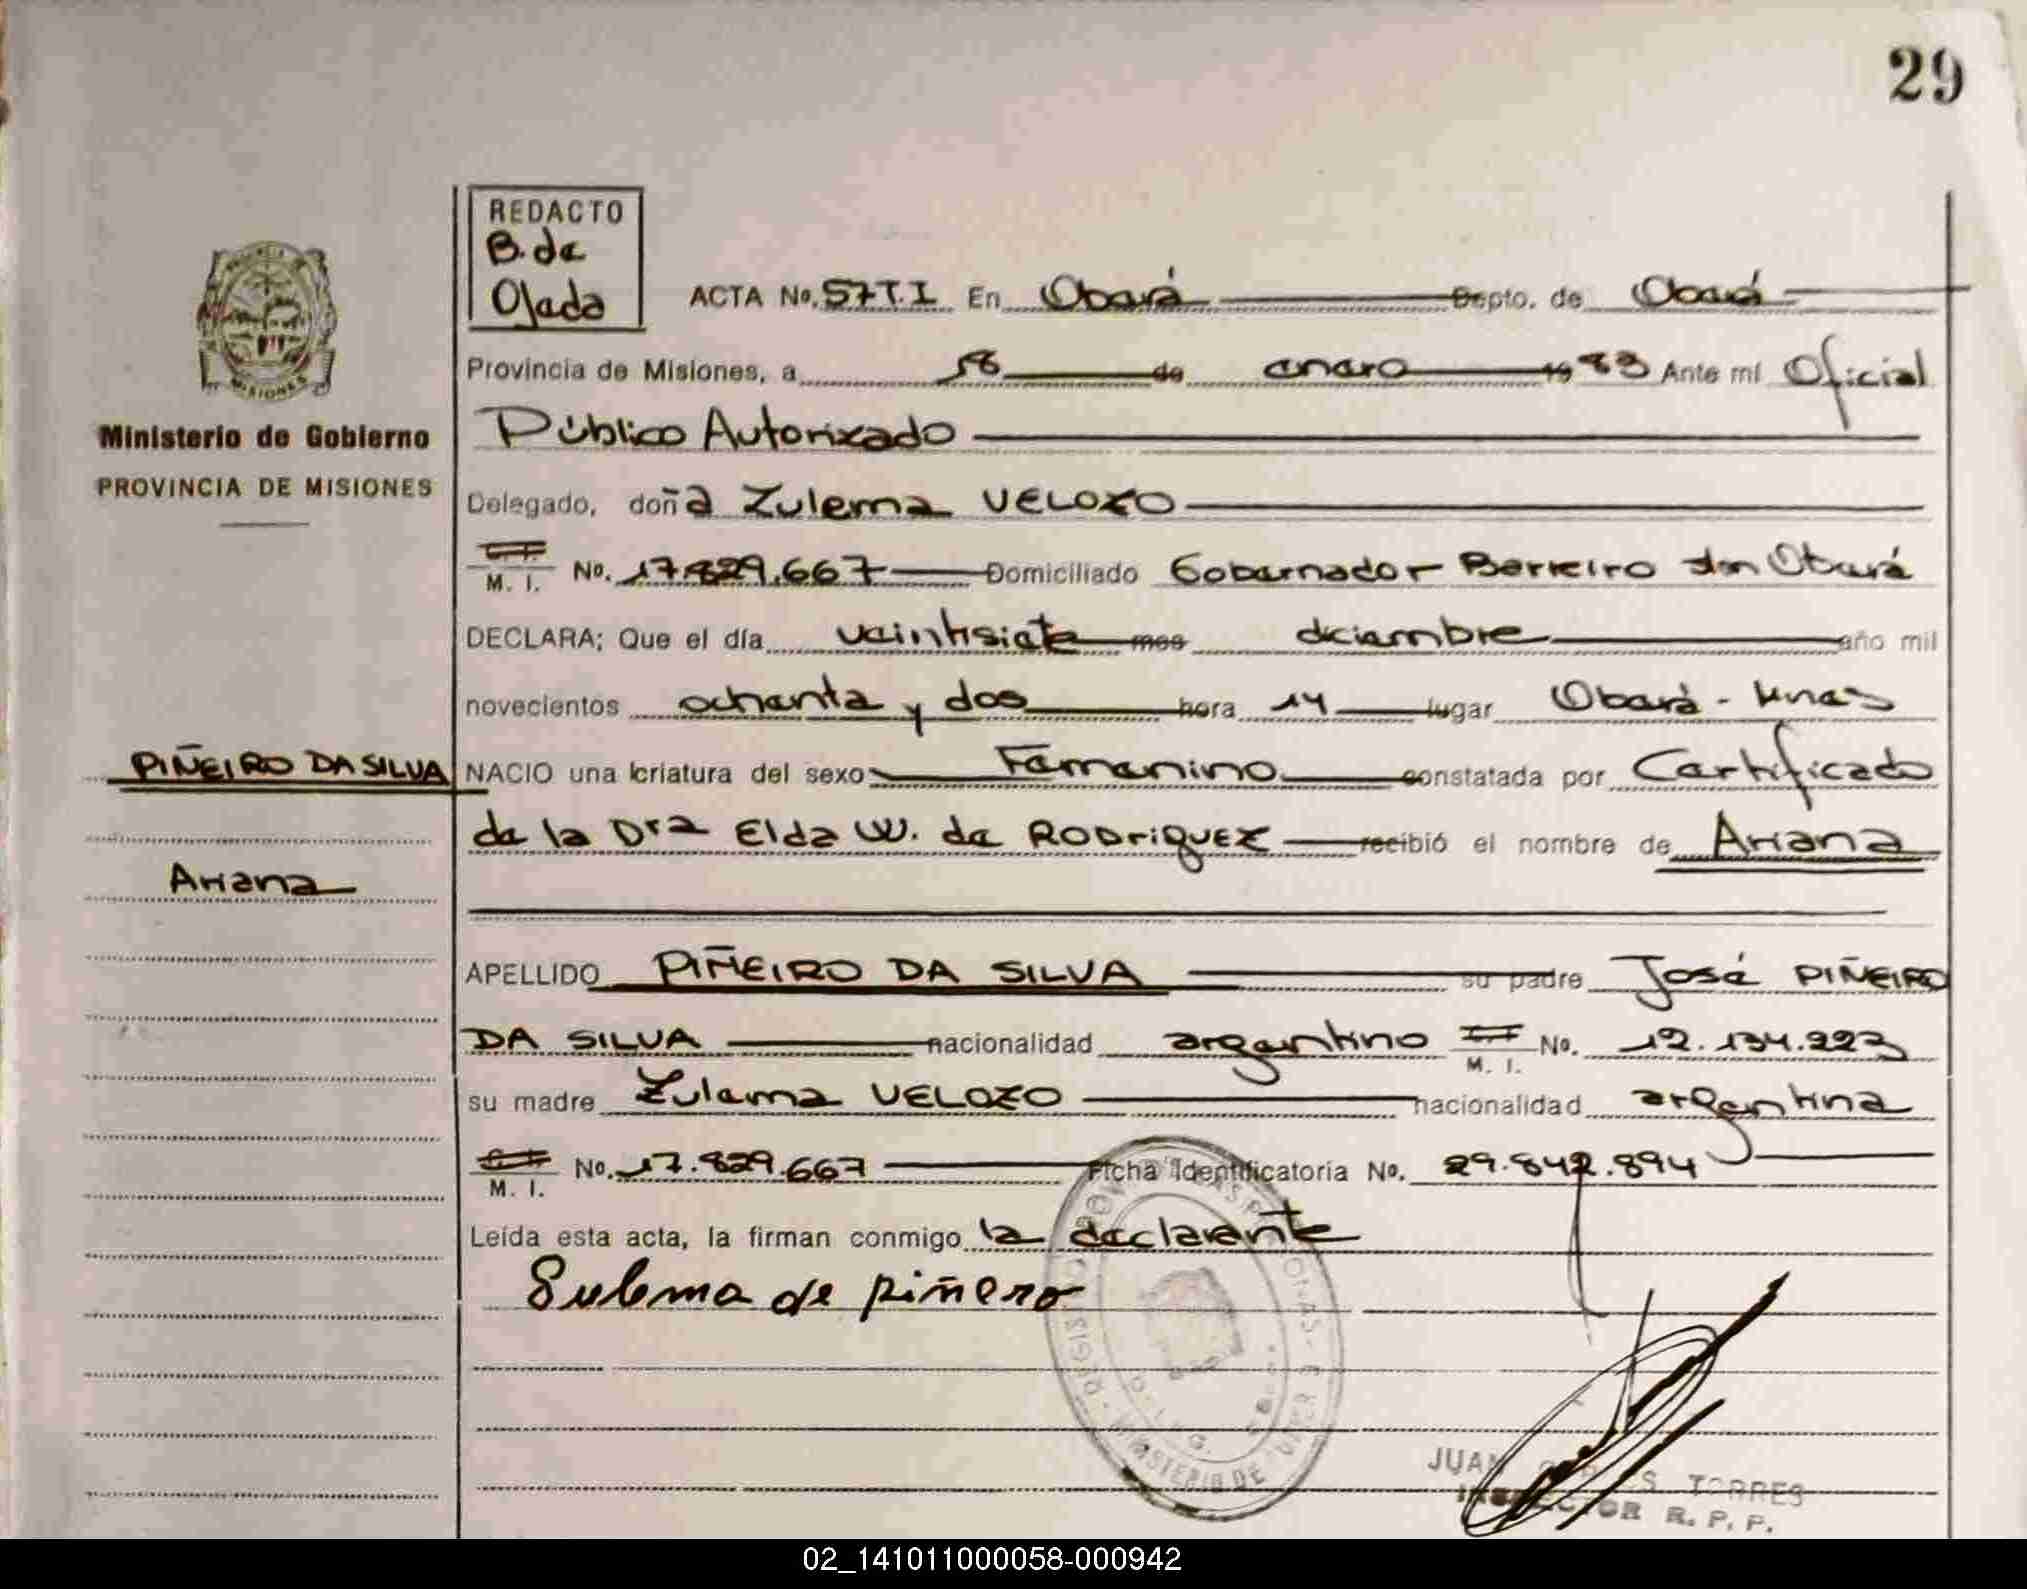 29
REDACTO
B. de
Ojeda
ACTA No. 57T.I En Oberá Depto. de Oberá
Provincia de Misiones, a 18 de enero 1983 Ante mí Oficial
Público Autorizado
Delegado, doña Zulema VELOZO
C. I. M. I. No. 17.829.667 Domiciliado Gobernador Berreiro Oberá
DECLARA; Que el día veintisiete mes diciembre año mil
novecientos ochenta y dos hora 14 lugar Oberá - Mnes
NACIO una criatura del sexo Femenino constatada por Certificado
de la Dra Elda W. de RODRIGUEZ recibió el nombre de Ariana
APELLIDO PIÑEIRO DA SILVA su padre José PIÑEIRO
DA SILVA nacionalidad argentino C. I. M. I. No. 12.134.223
su madre Zulema VELOZO nacionalidad argentina
C. I. M. I. No. 17.829.667 Ficha Identificatoria No. 29.842.894
Leída esta acta, la firman conmigo la declarante
Sulema de piñero
JUAN CARLOS TORRES
INSPECTOR R. P. P.
MISIONES
Ministerio de Gobierno
PROVINCIA DE MISIONES
PIÑEIRO DA SILVA
Ariana
02_141011000058-000942